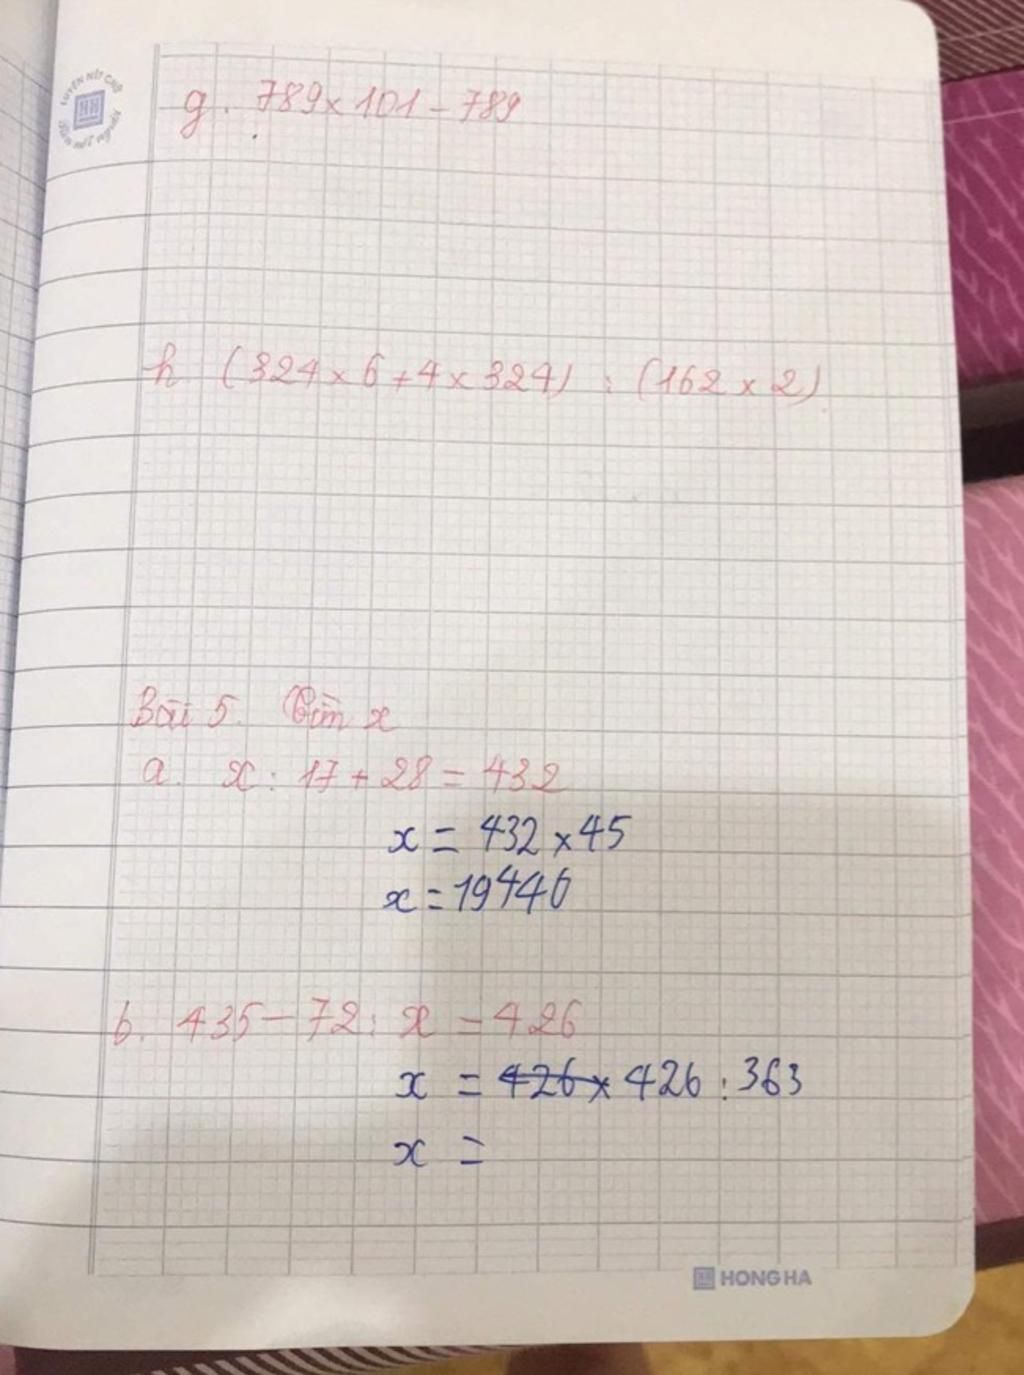 LUYỆN NÉT CHỮ
Rèn nết người
g. 789 × 101 - 789
h (324 × 6 + 4 × 324) : (162 × 2)
Bài 5. Tìm x
a. x : 17 + 28 = 432
x = 432 × 45
x = 19440
b. 435 - 72 : x = 426
x = 426 × 426 : 363
x =
HONG HA